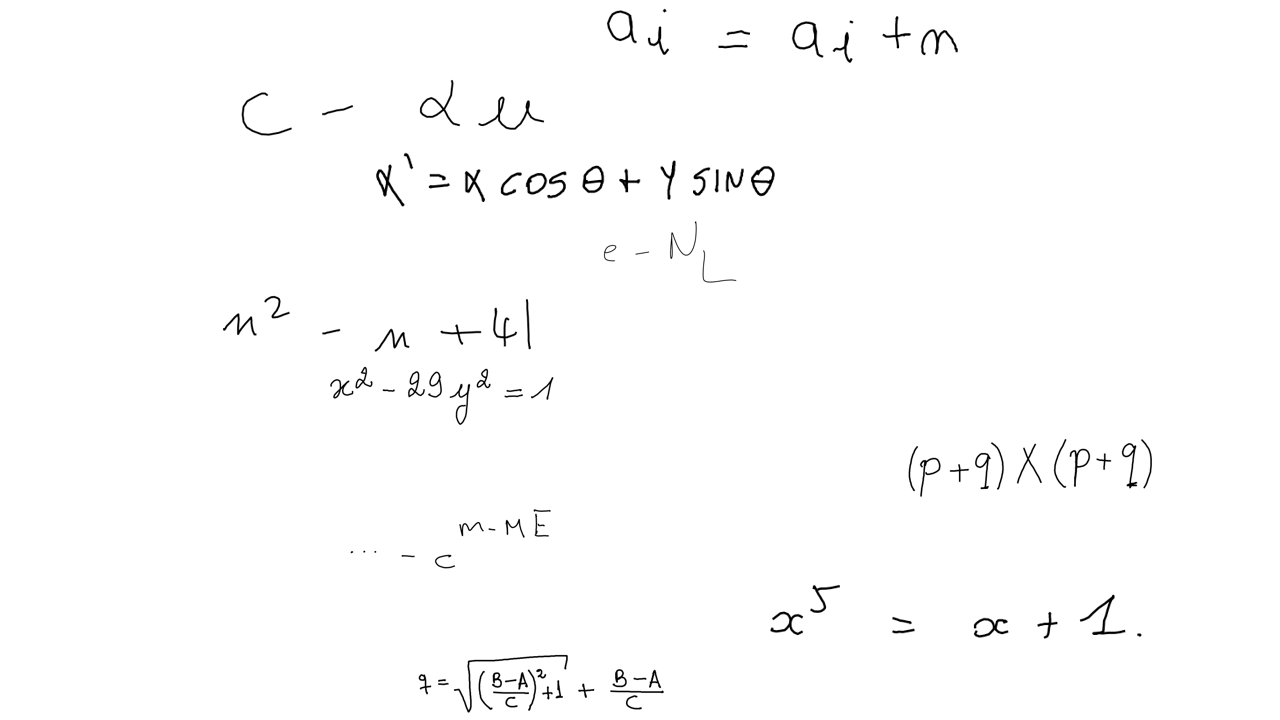 a_i = a_i + n
C - αu
x' = x cos θ + y sin θ
e - N_L
n² - n + 41
x² - 29y² = 1
(p+q) × (p+q)
... - c^{m-ME}
x⁵ = x + 1.
q = √((B-A)/C)² + 1) + (B-A)/C